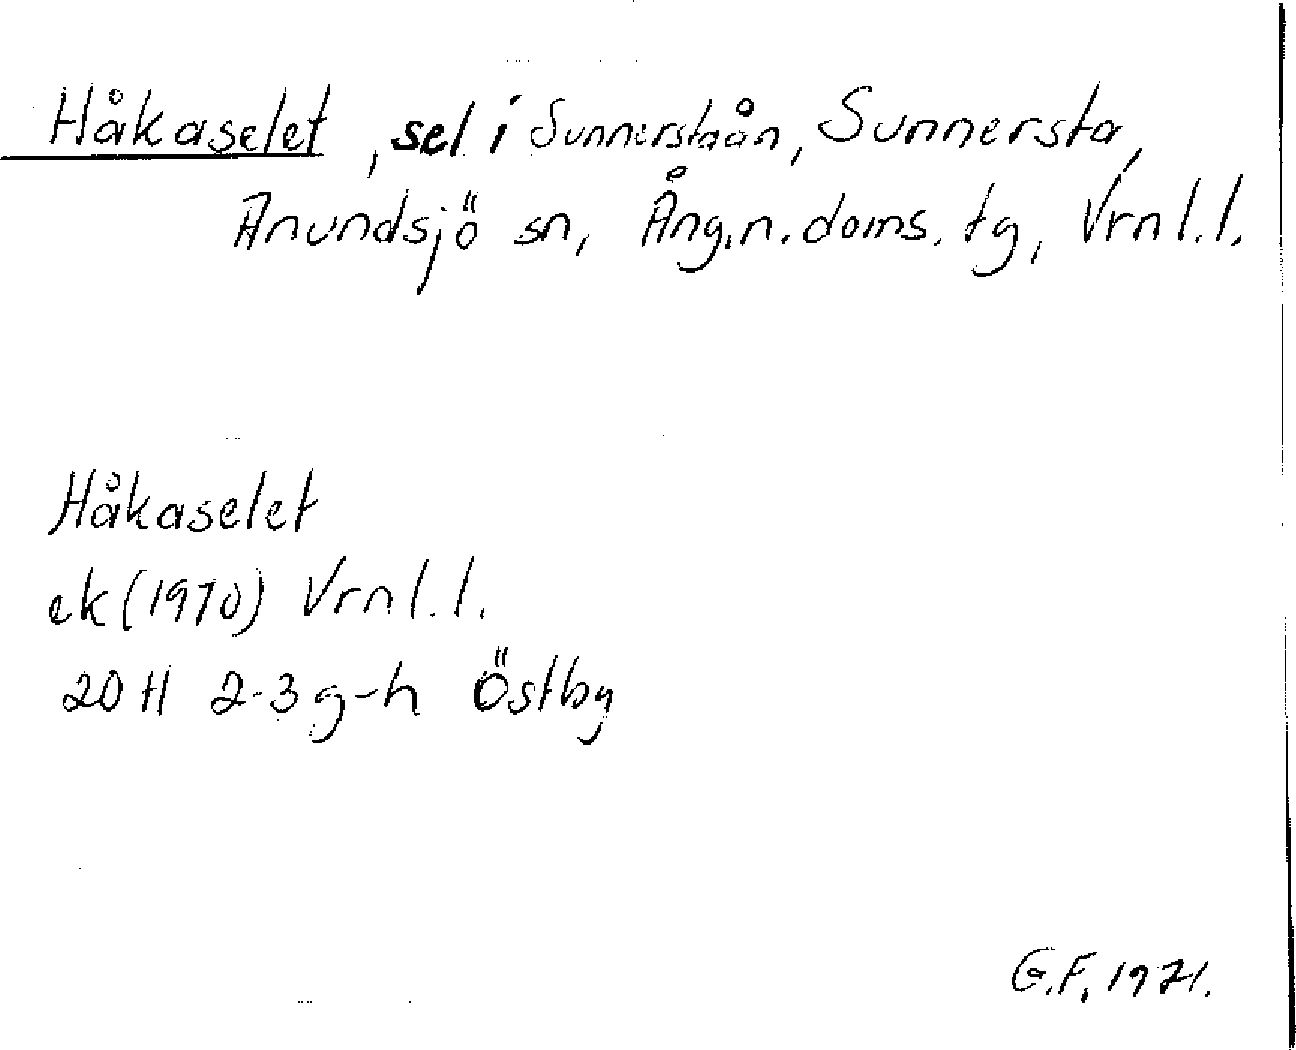 Håkaselet, sel i Sunnerstaån, Sunnersta,
Anundsjö sn, Ång.n.doms.tg, Vrnl.l.
Håkaselet
ek (1970) Vrnl.l.
20 H 2-3 g-h Östby
G.F. 1971.